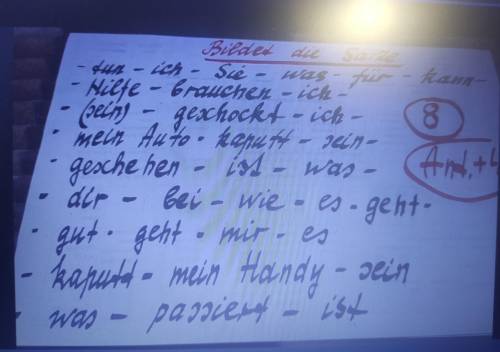 Bildet die Sätze
- tun - ich - Sie - was - für - kann -
- Hilfe - brauchen - ich -
- (sein) - geschockt - ich -
8
- mein Auto - kaputt - sein -
- geschehen - ist - was -
- dir - bei - wie - es - geht -
- gut - geht - mir - es
- kaputt - mein Handy - sein
- was - passiert - ist